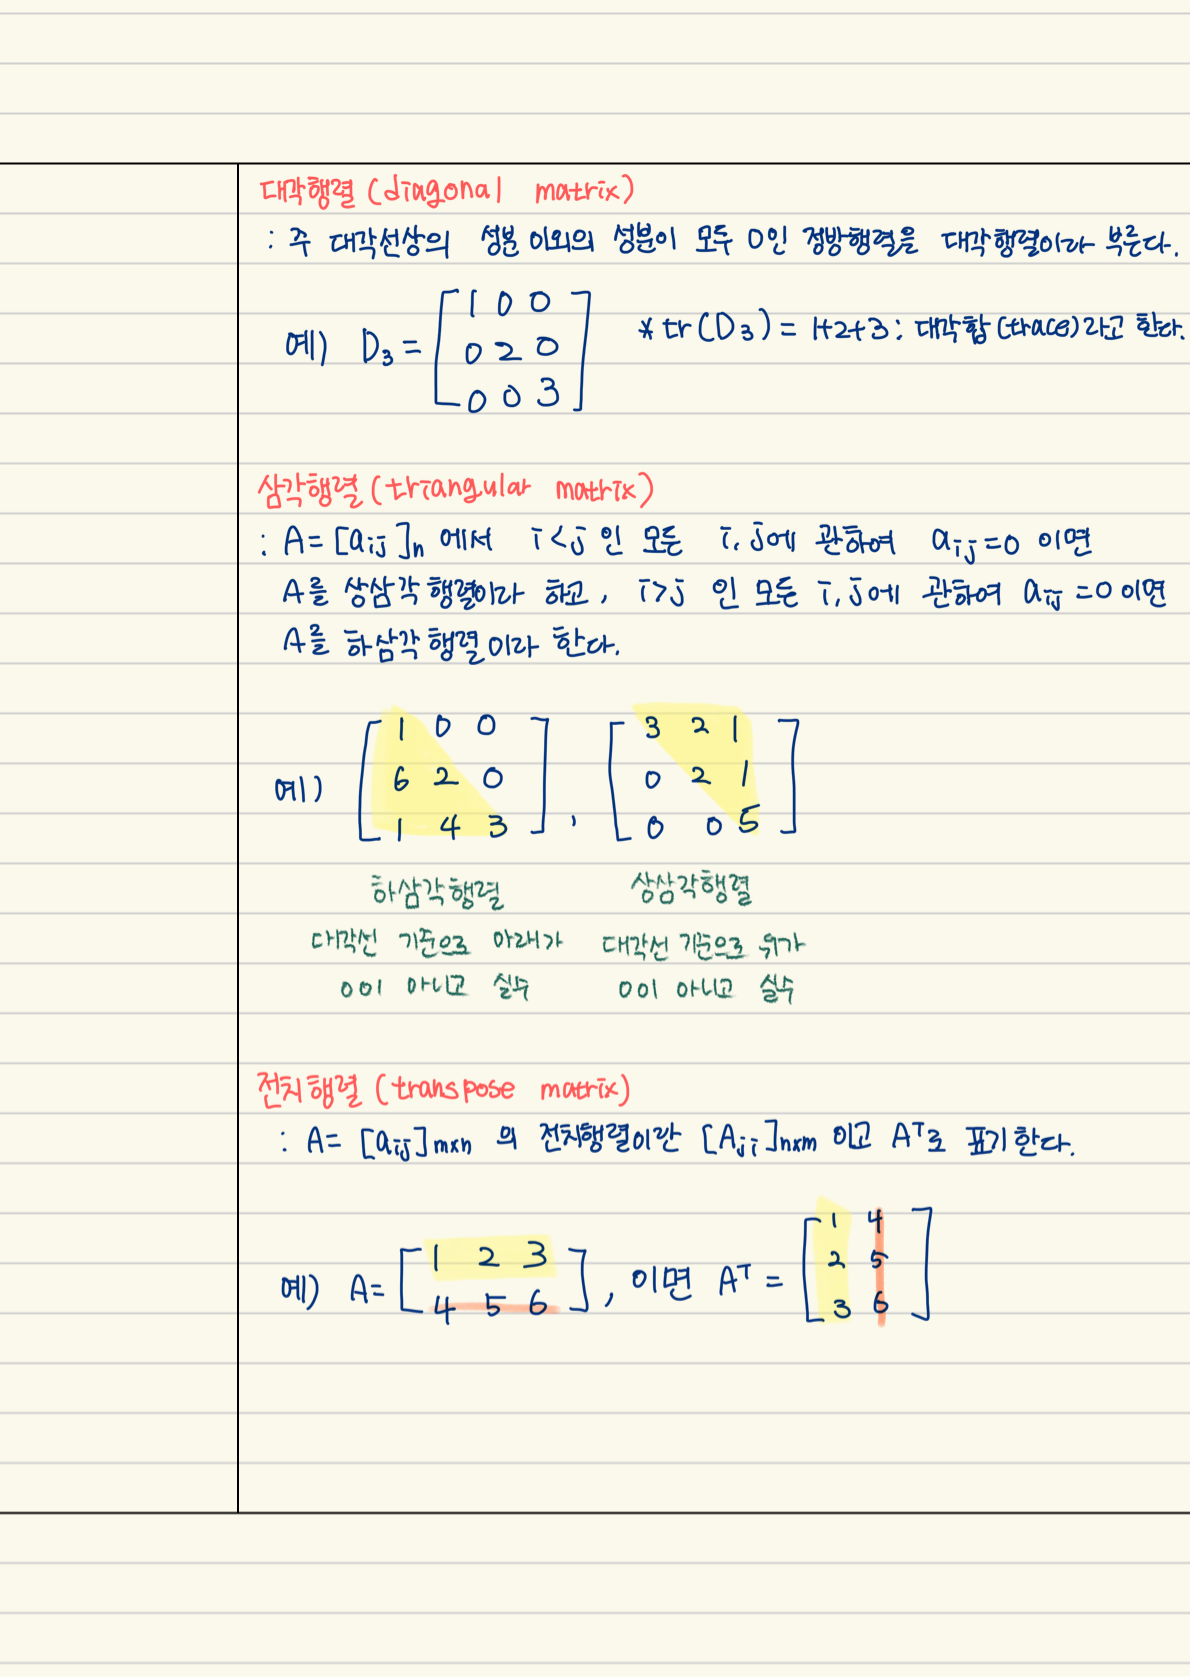 대각행렬 (diagonal matrix)
: 주 대각선상의 성분 이외의 성분이 모두 0인 정방행렬을 대각행렬이라 부른다.
예) D₃ = [1 0 0
0 2 0
0 0 3]
* tr(D₃) = 1+2+3 : 대각합 (trace)라고 한다.
삼각행렬 (triangular matrix)
: A = [aij]n 에서 i<j 인 모든 i, j에 관하여 aij=0 이면
A를 상삼각행렬이라 하고, i>j 인 모든 i, j에 관하여 aij=0 이면
A를 하삼각행렬이라 한다.
예) [1 0 0
6 2 0
1 4 3],
[3 2 1
0 2 1
0 0 5]
하삼각행렬
대각선 기준으로 아래가
0이 아니고 실수
상삼각행렬
대각선 기준으로 위가
0이 아니고 실수
전치행렬 (transpose matrix)
: A = [aij]m×n 의 전치행렬이란 [Aji]n×m 이고 Aᵀ로 표기한다.
예) A = [1 2 3
4 5 6], 이면 Aᵀ =
[1 4
2 5
3 6]